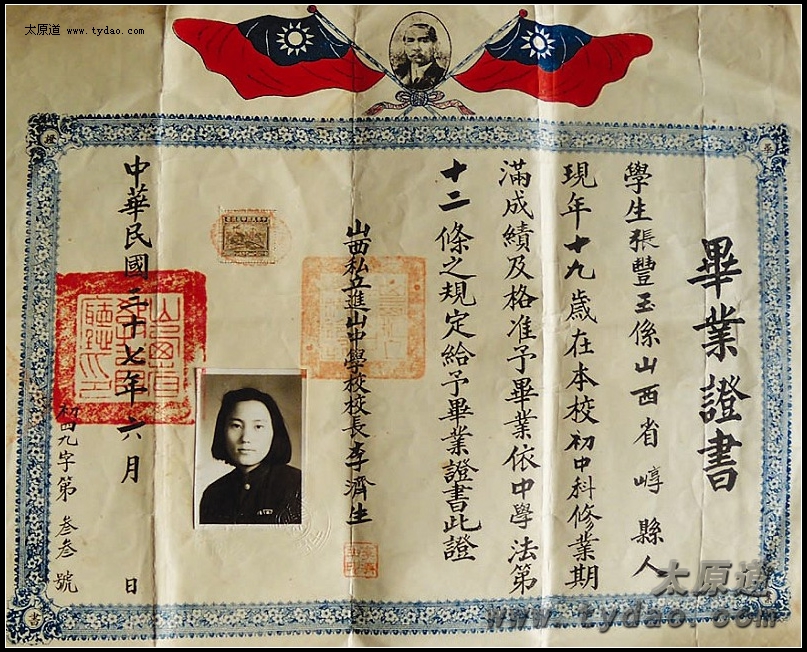 太原道 www.tydao.com
畢業證書
學生張豐玉係山西省崞縣人
現年十九歲在本校初中科修業期
滿成績及格准予畢業依中學法第
十二條之規定給予畢業證書此證
山西私立進山中學校校長李濟生
中華民國三十七年六月 日
九字第叁叁號
證
畢
書
太原道
www.tydao.com